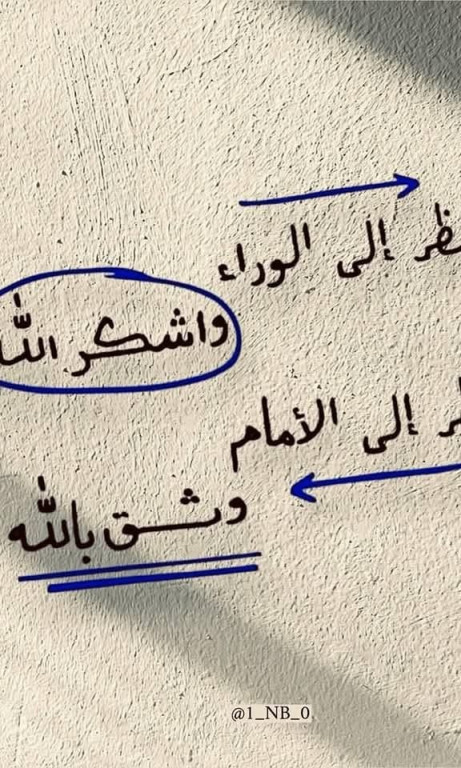 نظر إلى الوراء
واشكر الله
ر إلى الأمام
وثـق بالله
@1_NB_0